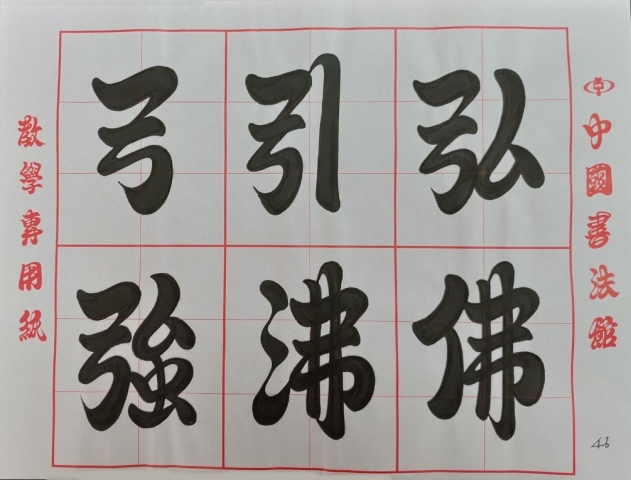 中國書法館
弓引弘
強沸佛
教學專用紙
46